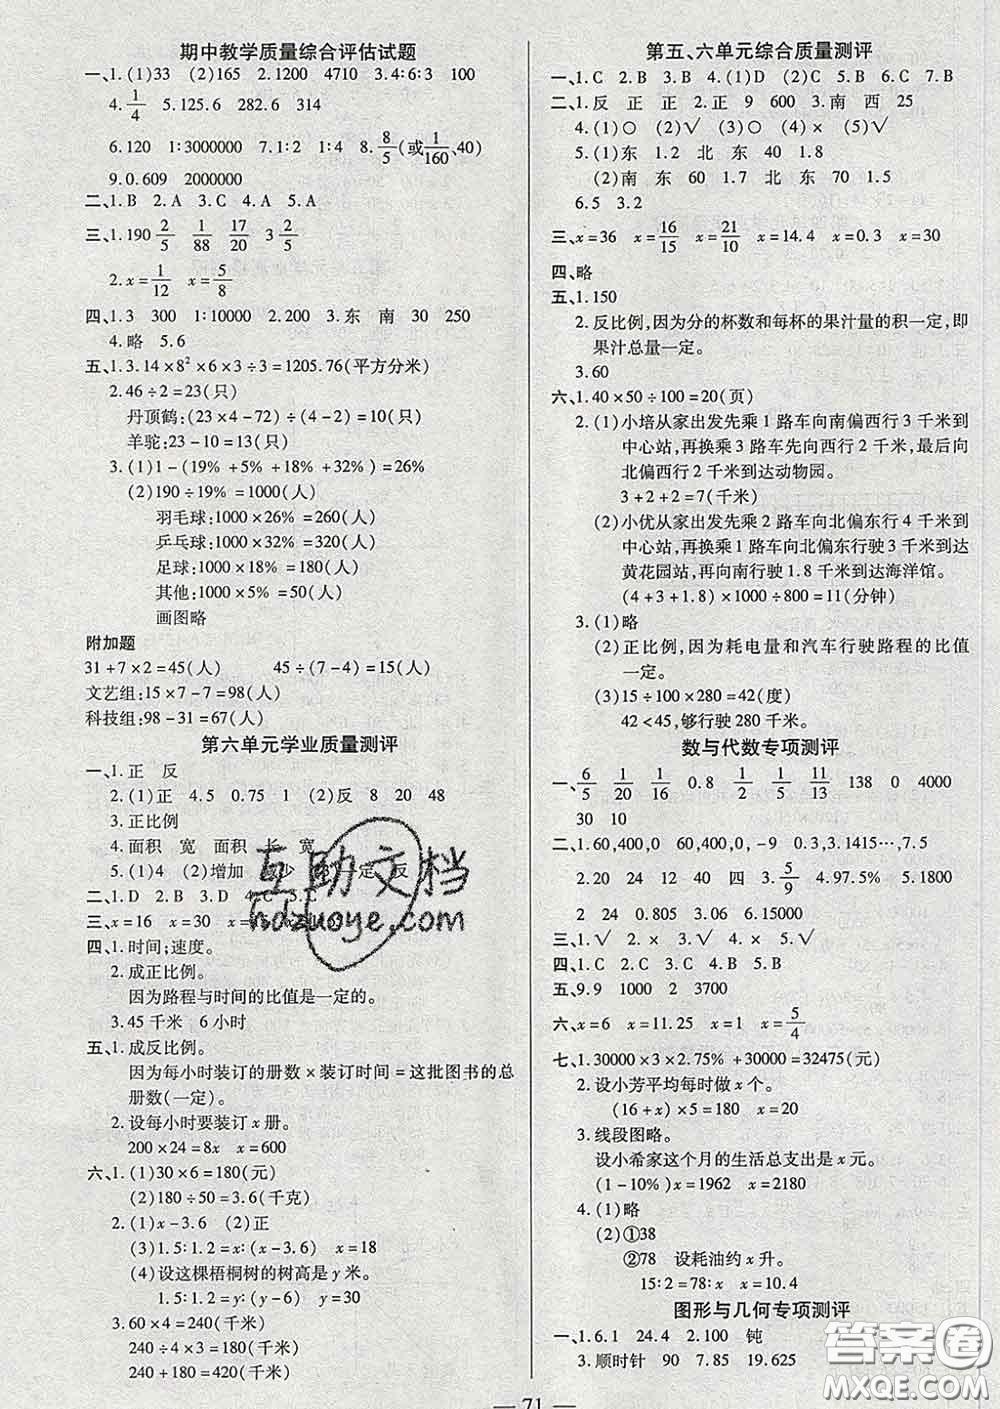 期中教学质量综合评估试题
一、1.(1)33 (2)165 2.1200 4710 3.4∶6∶3 100
4.1/4 5.125.6 282.6 314
6.120 1∶3000000 7.1∶2 1∶4 8.8/5(或1/160、40)
9.0.609 2000000
二、1.B 2.A 3.C 4.A 5.A
三、1.190 2/5 1/88 17/20 3 2/5
2.x=1/12 x=5/8
四、1.3 300 1∶10000 2.200 3.东 南 30 250
4.略 5.6
五、1.3.14×8²×6×3÷3=1205.76(平方分米)
2.46÷2=23(只)
丹顶鹤:(23×4-72)÷(4-2)=10(只)
羊驼:23-10=13(只)
3.(1)1-(19%+5%+18%+32%)=26%
(2)190÷19%=1000(人)
羽毛球:1000×26%=260(人)
乒乓球:1000×32%=320(人)
足球:1000×18%=180(人)
其他:1000×5%=50(人)
画图略
附加题
31+7×2=45(人) 45÷(7-4)=15(人)
文艺组:15×7-7=98(人)
科技组:98-31=67(人)
第六单元学业质量测评
一、1.正 反
2.(1)正 4.5 0.75 1 (2)反 8 20 48
3.正比例
4.面积 宽 面积 长 宽
5.(1)4 (2)增加 减少 定 反
二、1.D 2.B 3.C 4.A 5.C
三、x=16 x=30 x=
四、1.时间;速度。
2.成正比例。
因为路程与时间的比值是一定的。
3.45千米 6小时
五、1.成反比例。
因为每小时装订的册数×装订时间=这批图书的总
册数(一定)。
2.设每小时要装订x册。
200×24=8x x=600
六、1.(1)30×6=180(元)
(2)180÷50=3.6(千克)
2.(1)x-3.6 (2)正
(3)1.5∶1.2=x∶(x-3.6) x=18
(4)设这棵梧桐树的树高是y米。
1.5∶1.2=y∶(y-6) y=30
3.60×4=240(千米)
240÷4×3=180(千米)
240+180=420(千米)
第五、六单元综合质量测评
一、1.C 2.B 3.B 4.(1)D (2)C 5.B 6.C 7.B
二、1.反 正 正 2.正 9 600 3.南 西 25
4.(1)○ (2)√ (3)○ (4)× (5)√
5.(1)东 1.2 北 东 40 1.8
(2)南 东 60 1.7 北 东 70 1.5
6.5 3.2
三、x=36 x=16/15 x=21/10 x=14.4 x=0.3 x=30
四、略
五、1.150
2.反比例,因为分的杯数和每杯的果汁量的积一定,即
果汁总量一定。
3.60
六、1.40×50÷100=20(页)
2.(1)小培从家出发先乘1路车向南偏西行3千米到
中心站,再换乘3路车先向西行2千米,最后向
北偏西行2千米到达动物园。
3+2+2=7(千米)
(2)小优从家出发先乘2路车向北偏东行4千米到
中心站,再换乘1路车向北偏东行驶3千米到达
黄花园站,再向南行驶1.8千米到达海洋馆。
(4+3+1.8)×1000÷800=11(分钟)
3.(1)略
(2)正比例,因为耗电量和汽车行驶路程的比值
一定。
(3)15÷100×280=42(度)
42<45,够行驶280千米。
数与代数专项测评
一、6/5 1/20 1/16 0.8 1/2 1/5 11/13 138 0 4000
30 10
二、1.60,400,0 60,400,0,-9 0.3,3.1415…,7.5
2.20 24 12 40 四 3.5/9 4.97.5% 5.1800
2 24 0.805 3.06 6.15000
三、1.√ 2.× 3.√ 4.× 5.√
四、1.C 2.C 3.C 4.B 5.B
五、9.9 1000 2 3700
六、x=6 x=11.25 x=1 x=5/4
七、1.30000×3×2.75%+30000=32475(元)
2.设小芳平均每时做x个。
(16+x)×5=180 x=20
3.线段图略。
设小希家这个月的生活总支出是x元。
(1-10%)x=1962 x=2180
4.(1)略
(2)①38
②78 设耗油约x升。
15∶2=78∶x x=10.4
图形与几何专项测评
一、1.6.1 24.4 2.100 钝
3.顺时针 90 7.85 19.625
71
互助文档
hdzuoye.com
答案圈
MXQE.COM